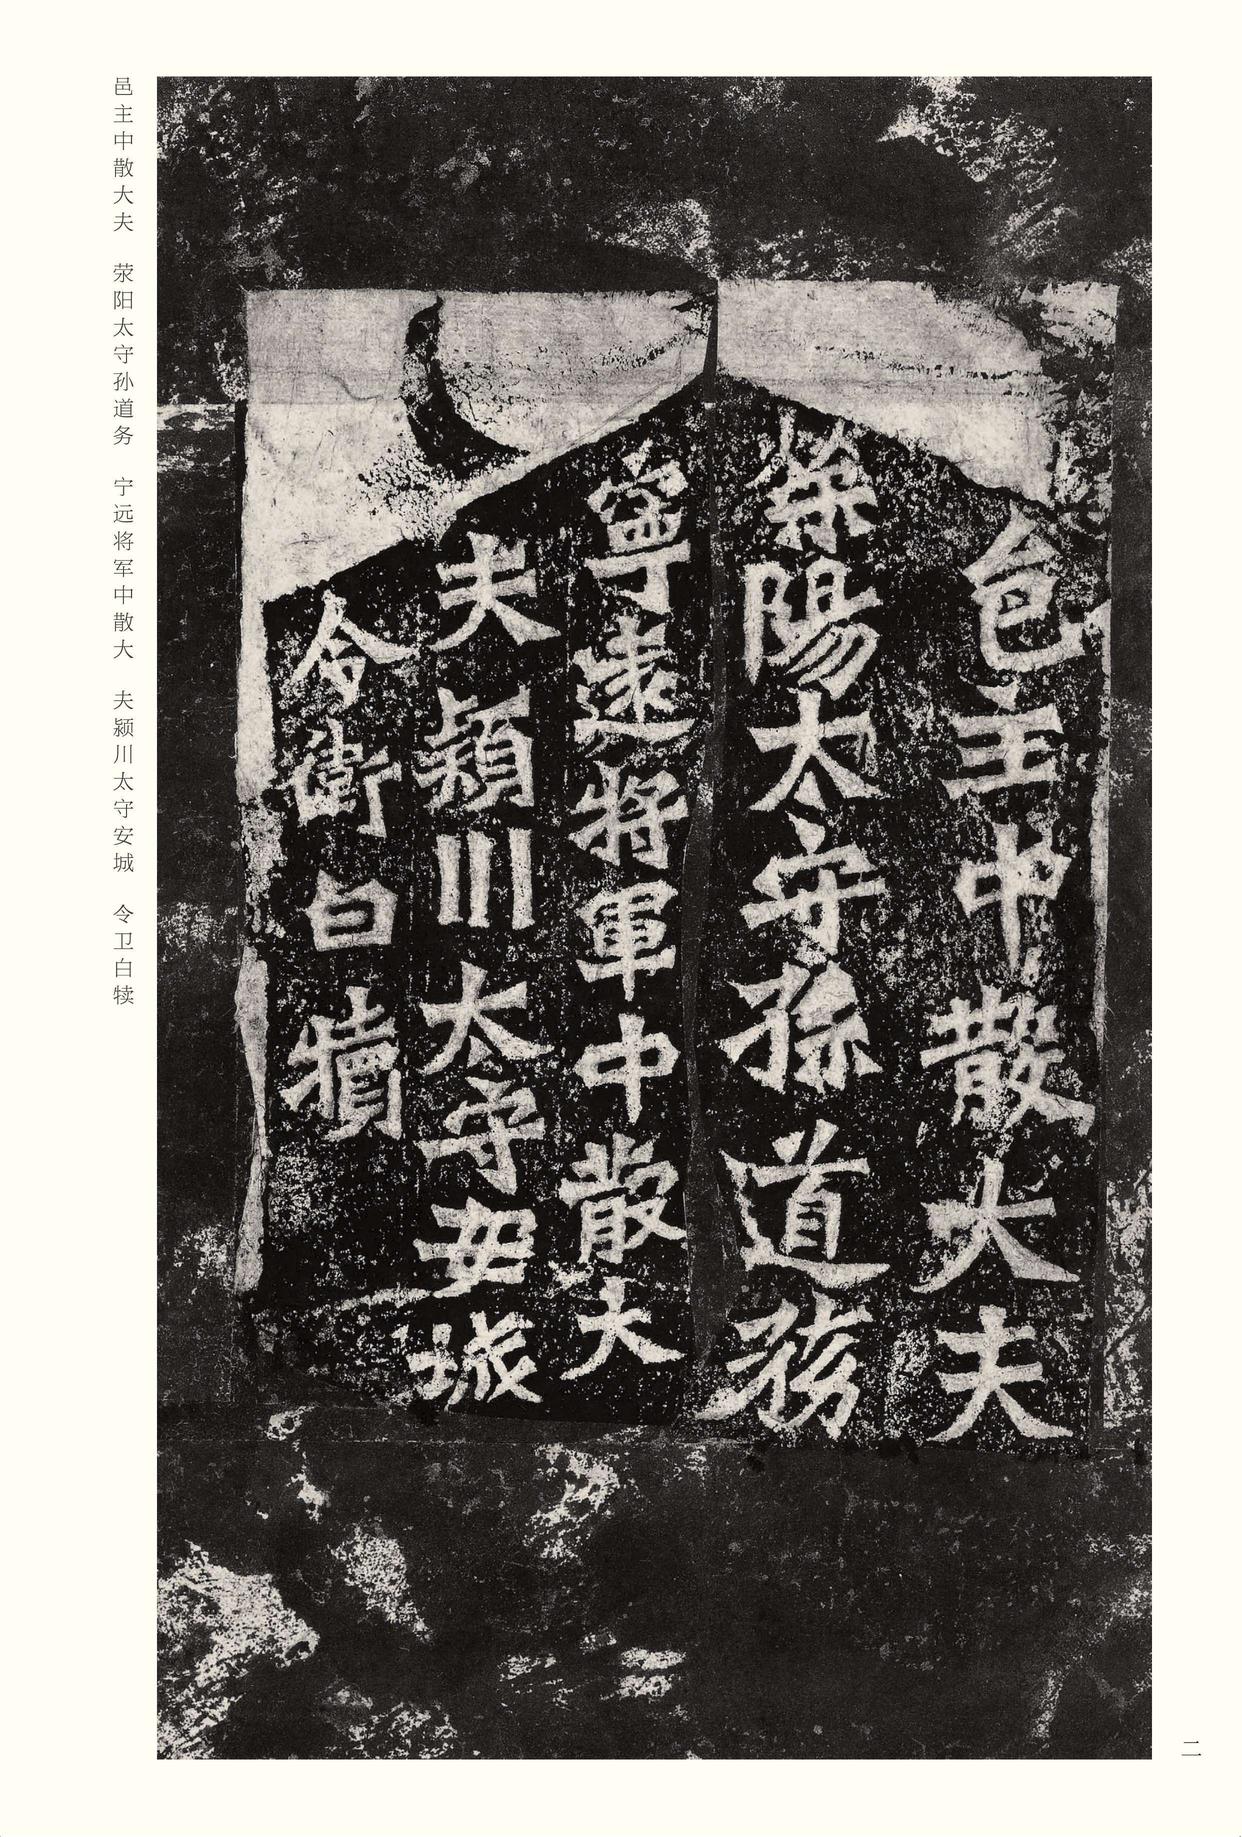 邑主中散大夫
滎陽太守孫道務
寧遠將軍中散大
夫潁川太守安城
令衛白犢
邑主中散大夫　荥阳太守孙道务　宁远将军中散大　夫颍川太守安城　令卫白犊
二